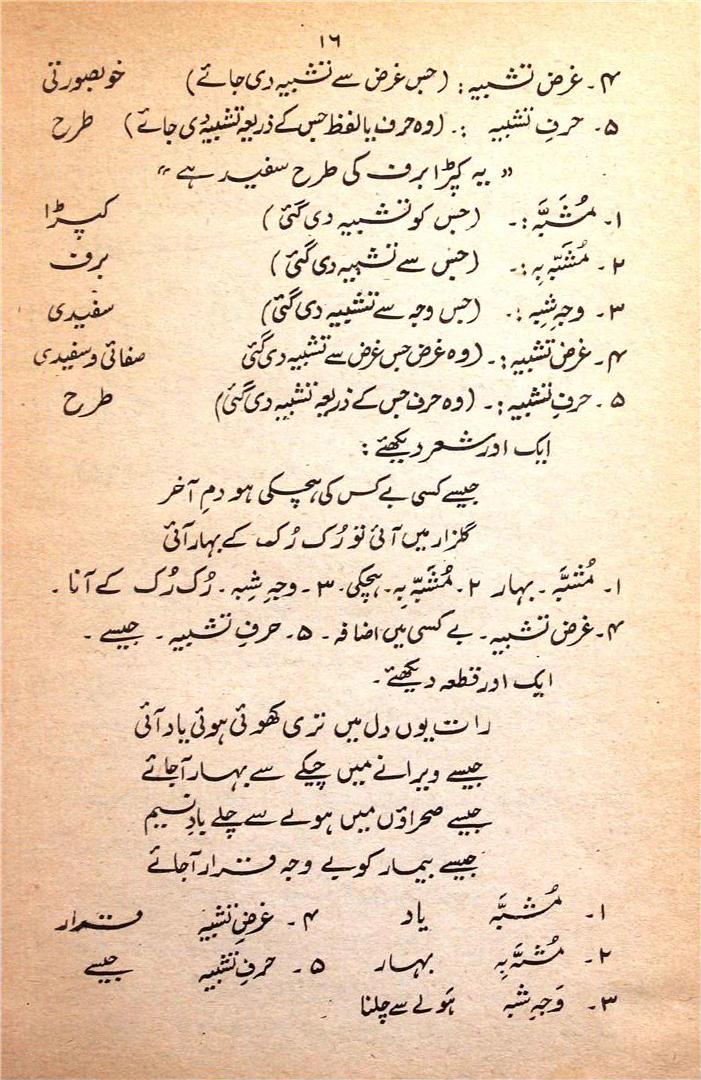 ۱۶
۴۔ غرض تشبیہ: (جس غرض سے تشبیہ دی جائے) خوبصورتی
۵۔ حرفِ تشبیہ :۔ (وہ حرف یا لفظ جس کے ذریعہ تشبیہ دی جائے) طرح
" یہ کپڑا برف کی طرح سفید ہے "
۱۔ مُشَبَّہ:۔ (جس کو تشبیہ دی گئی) کپڑا
۲۔ مُشَبَّہ بِہ:۔ (جس سے تشبیہ دی گئی) برف
۳۔ وجہِ شبہ:۔ (جس وجہ سے تشبیہ دی گئی) سفیدی
۴۔ غرض تشبیہ:۔ (وہ غرض جس غرض سے تشبیہ دی گئی صفائی و سفیدی
۵۔ حرفِ تشبیہ:۔ (وہ حرف جس کے ذریعہ تشبیہ دی گئی) طرح
ایک اور شعر دیکھئے :
جیسے کسی بے کس کی ہچکی ہو دمِ آخر
گلزار میں آئی تو رُک رُک کے بہار آئی
۱۔ مُشَبَّہ۔ بہار ۲۔ مُشَبَّہ بِہ۔ ہچکی۔ ۳۔ وجہِ شبہ۔ رُک رُک کے آنا۔
۴۔ غرض تشبیہ۔ بے کسی میں اضافہ۔ ۵۔ حرفِ تشبیہ۔ جیسے۔
ایک اور قطعہ دیکھئے۔
رات یوں دل میں تری کھوئی ہوئی یاد آئی
جیسے ویرانے میں چپکے سے بہار آجائے
جیسے صحراؤں میں ہولے سے چلے بادِ نسیم
جیسے بیمار کو بے وجہ قرار آجائے
۱۔ مُشَبَّہ یاد ۴۔ غرضِ تشبیہ قرار
۲۔ مُشَبَّہ بِہ بہار ۵۔ حرفِ تشبیہ جیسے
۳۔ وَجہِ شبہ ہَولے سے چلنا